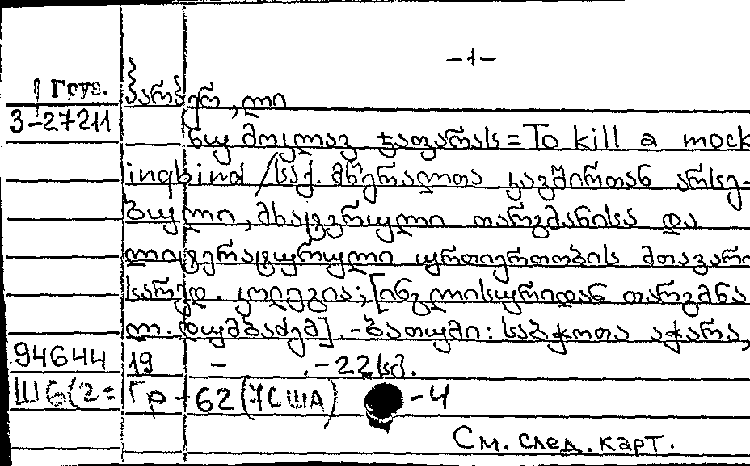 -1-
1 Груз. ჰარპერ, ლი
3-27211
ნუ მოკლავ ჯაფარას = To kill a mock
ingbind / საქ. მწერალთა კავშირთან არსე-
ბული, მხატვრული თარგმანისა და
ლიტერატურული ურთიერთობის მთავარი
სარედ. კოლეგია; [ინგლისურიდან თარგმნა
ლ. თუმბაძემ]. - ბათუმი: საბჭოთა აჭარა,
94644 19 - . - 22 სმ.
Ш6(2= Гр - 62 (7США) -4
См. след. карт.